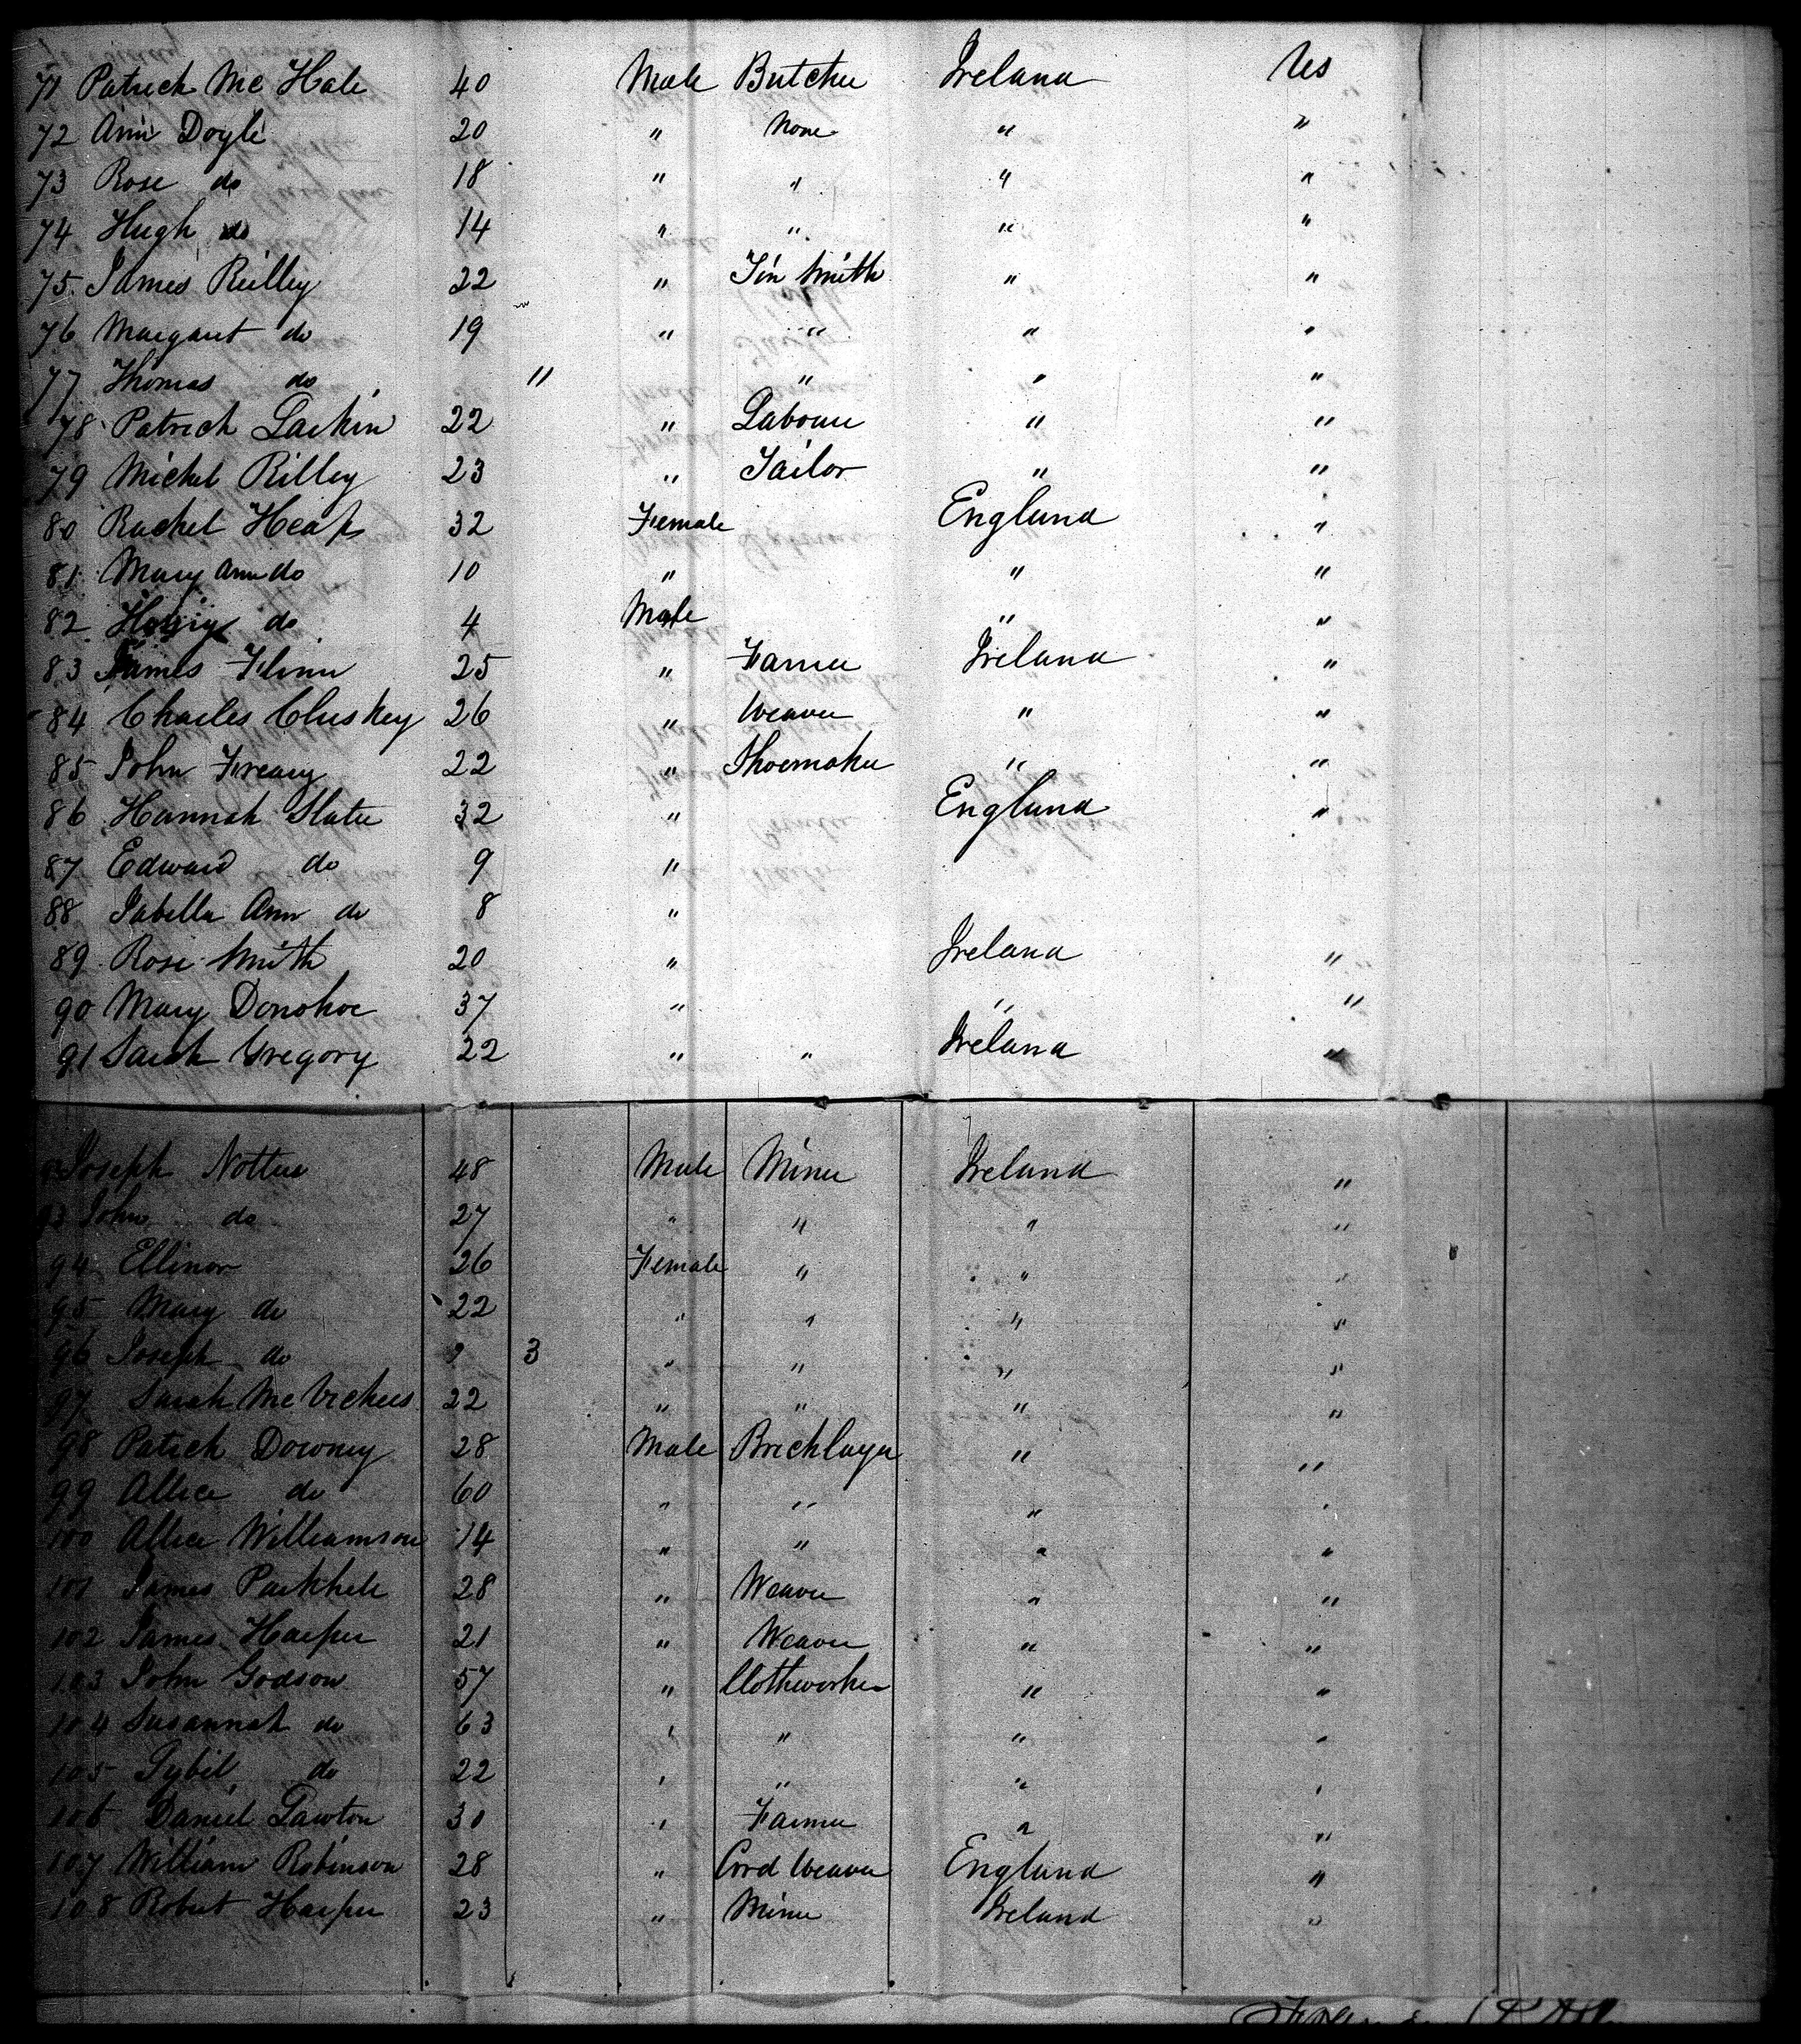 71 Patrick Mc Hale 40 Male Butcher Ireland Us
72 Ann Doyle 20 " None " "
73 Rose do 18 " " " "
74 Hugh do 14 " " " "
75 James Reilley 22 " Tin Smith " "
76 Margaret do 19 " " " "
77 Thomas do " " " "
78 Patrick Larkin 22 " Labourer " "
79 Michel Rilley 23 " Tailor " "
80 Rachel Heap 32 Female England "
81 Mary Ann do 10 " " "
82 do 4 Male " "
83 James Flinn 25 " Farmer Ireland "
84 Charles Cluskey 26 " Weaver " "
85 John Freary 22 " Shoemaker " "
86 Hannah Slater 32 " England "
87 Edward do 9 "
88 Isabella Ann do 8 "
89 Rose Smith 20 " Ireland "
90 Mary Donohoe 37 " " "
91 Sarah Gregory 22 " " Ireland "
Joseph Notter 48 Male Miner Ireland "
93 John do 27 " " " "
94 Ellinor 26 Female " " "
95 Mary do 22 " " " "
96 Joseph do 3 " " " "
97 Sarah Mc Vickers 22 " " " "
98 Patrick Downey 28 Male Bricklayer " "
99 Allice do 60 " " " "
100 Allice Williamson 14 " " " "
101 James 28 " Weaver " "
102 James Harper 21 " Weaver " "
103 John Godson 57 " Clothworker " "
104 Susannah do 63 " " " "
105 Sybil do 22 " " " "
106 Daniel Lawton 30 " Farmer " "
107 William Robinson 28 " Cord Weaver England "
108 Robert Harper 23 " Miner Ireland "